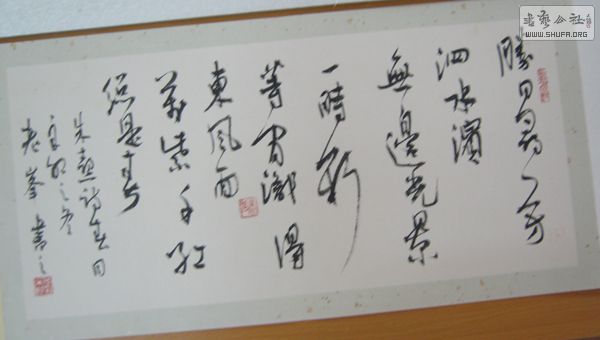 勝日尋芳
泗水濱
無邊光景
一時新
等閒識得
東風面
萬紫千紅
總是春
朱熹詩春日
之冬
老峯書之
書藝公社
WWW.SHUFA.ORG